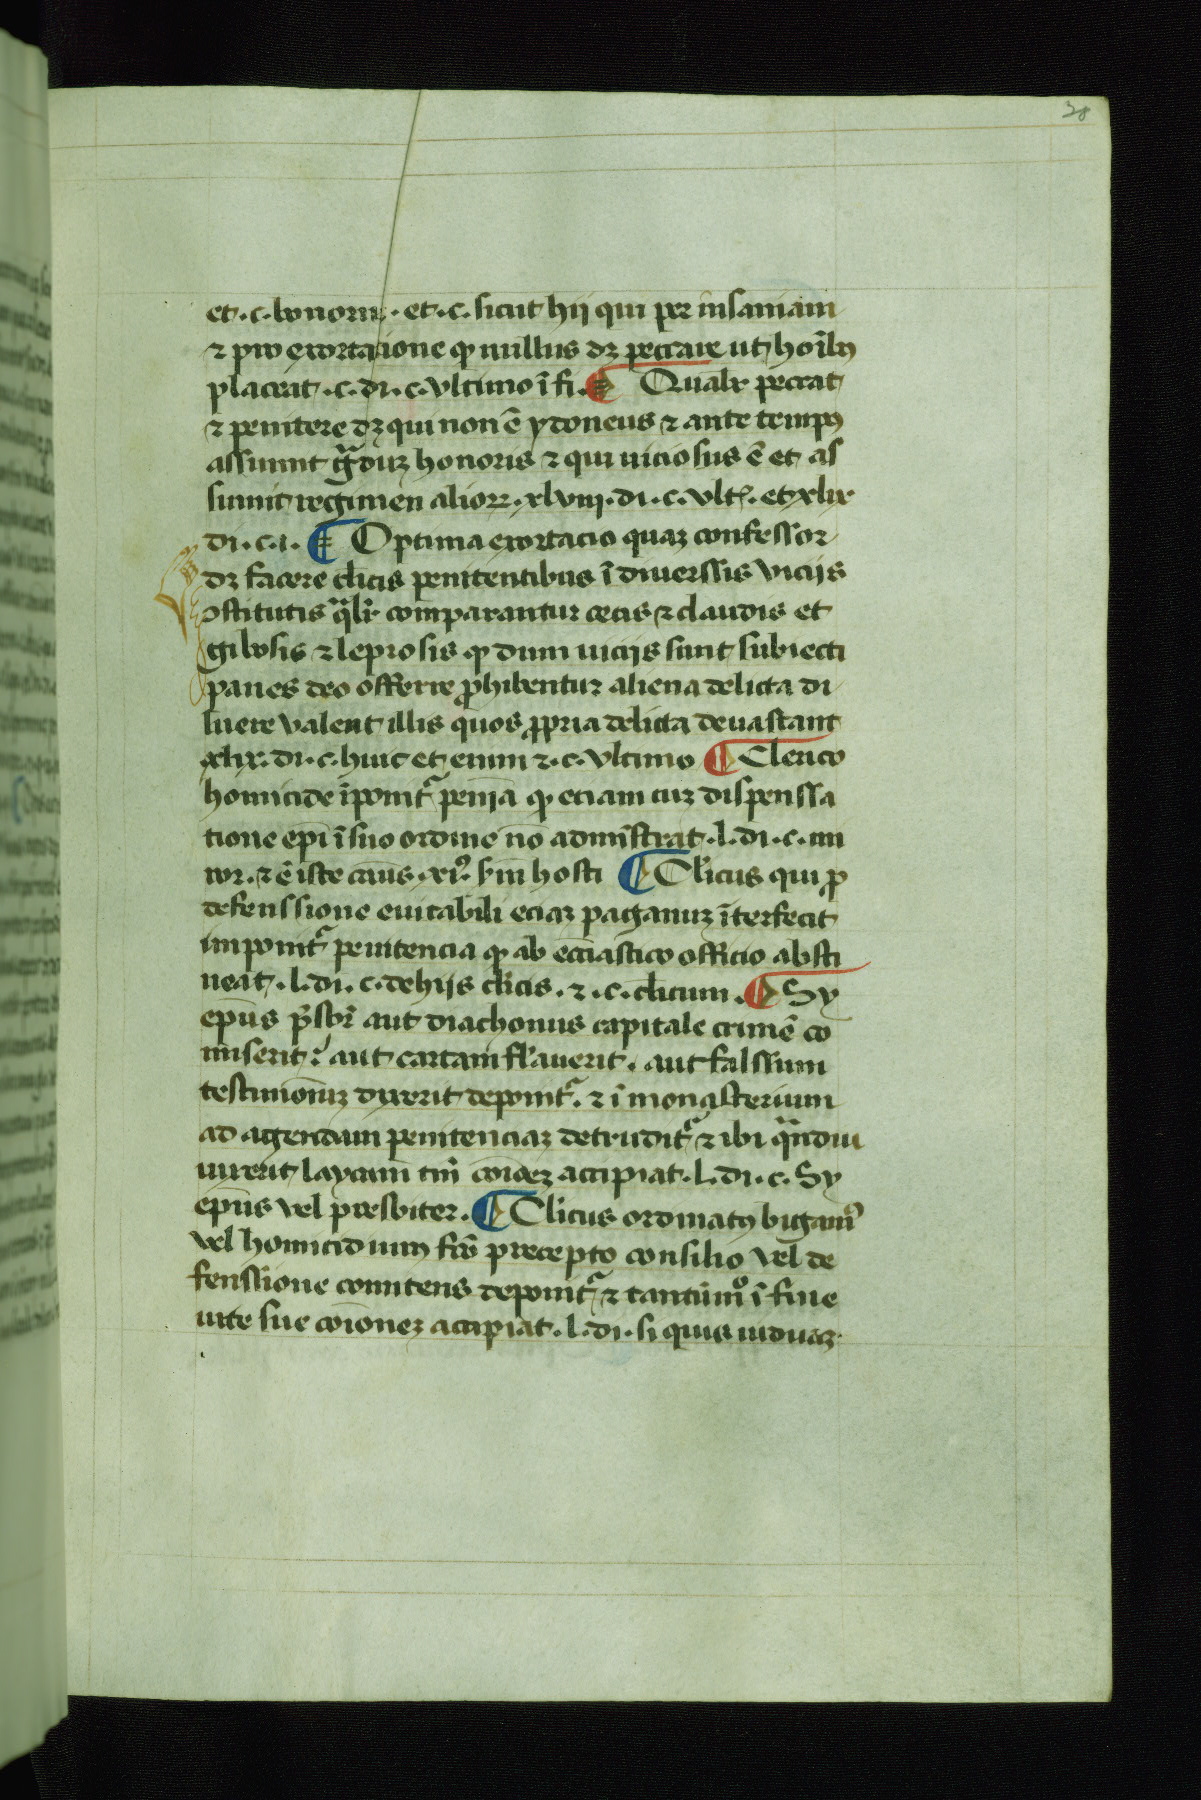 38
et .c. bonorum . et .c. sicut hij qui per insaniam
⁊ pro exortatione ꝙ nullus dꝫ peccare ut hoı̃bꝰ
placeat .c. di. c. vltimo ĩ fi. ¶ Qualr̃ peccat
⁊ penitere dꝫ qui non ẽ ydoneus ⁊ ante tempꝰ
assumit gͣduꝫ honoris ⁊ qui uiciosus ẽ et as
sumit regimen alioꝝ . xlviij. di. c. vlt̃. et xlix
di. c. i. ¶ Optima exortacio quaꝫ confessor
dꝫ facere cl̃icis penitentibus ĩ diuerssis vicijs
ꝯstitutis qͣlr̃ comparantur cecis ⁊ claudis et
gibosis ⁊ leprosis ꝙ dum uicijs sunt subiecti
panes deo offerre ꝓhibentur aliena delicta di
luere valent illis quos ꝓpria delicta deuastant
xlix. di. c. hinc et enim ⁊ .c. vltimo ¶ Clerico
homicide ĩponit᷑ penĩa ꝙ etiam cuꝫ dispenssa
tione epĩ ĩ suo ordine nõ administrat .l. di. c. mi
ror. ⁊ ẽ iste casũs .xi.ꝰ ẜm hosti ¶ Cl̃icus qui ꝓ
defenssione euitabili eciaꝫ paganuꝫ ĩterfecit
imponit᷑ penitencia ꝙ ab eccl̃iastico officio absti
neat .l. di. c. de hijs cl̃icis . ⁊ .c. cl̃icum . ¶ Sy
ep̃us p̃sbr̃ aut diachonus capitale crimẽ co
miserit: aut cartam fl̃auerit . aut falssum
testimoniũꝫ dixerit deponit᷑ . ⁊ ĩ monasterium
ad agendam penitenciaꝫ detrudit᷑ ⁊ ibi qͣndiu
uixerit laycam tm̃ cõioeꝫ accipiat .l. di. c. Sy
ep̃us vel presbiter. ¶ Cl̃icus ordinatꝰ bigamꝰ
vel homicidium fcõ precepto consilio vel de
fenssione comitens deponit᷑ ⁊ tantũmͦ ĩ fine
uite sue cõioneꝫ accipiat .l. di. si quis uiduaꝫ